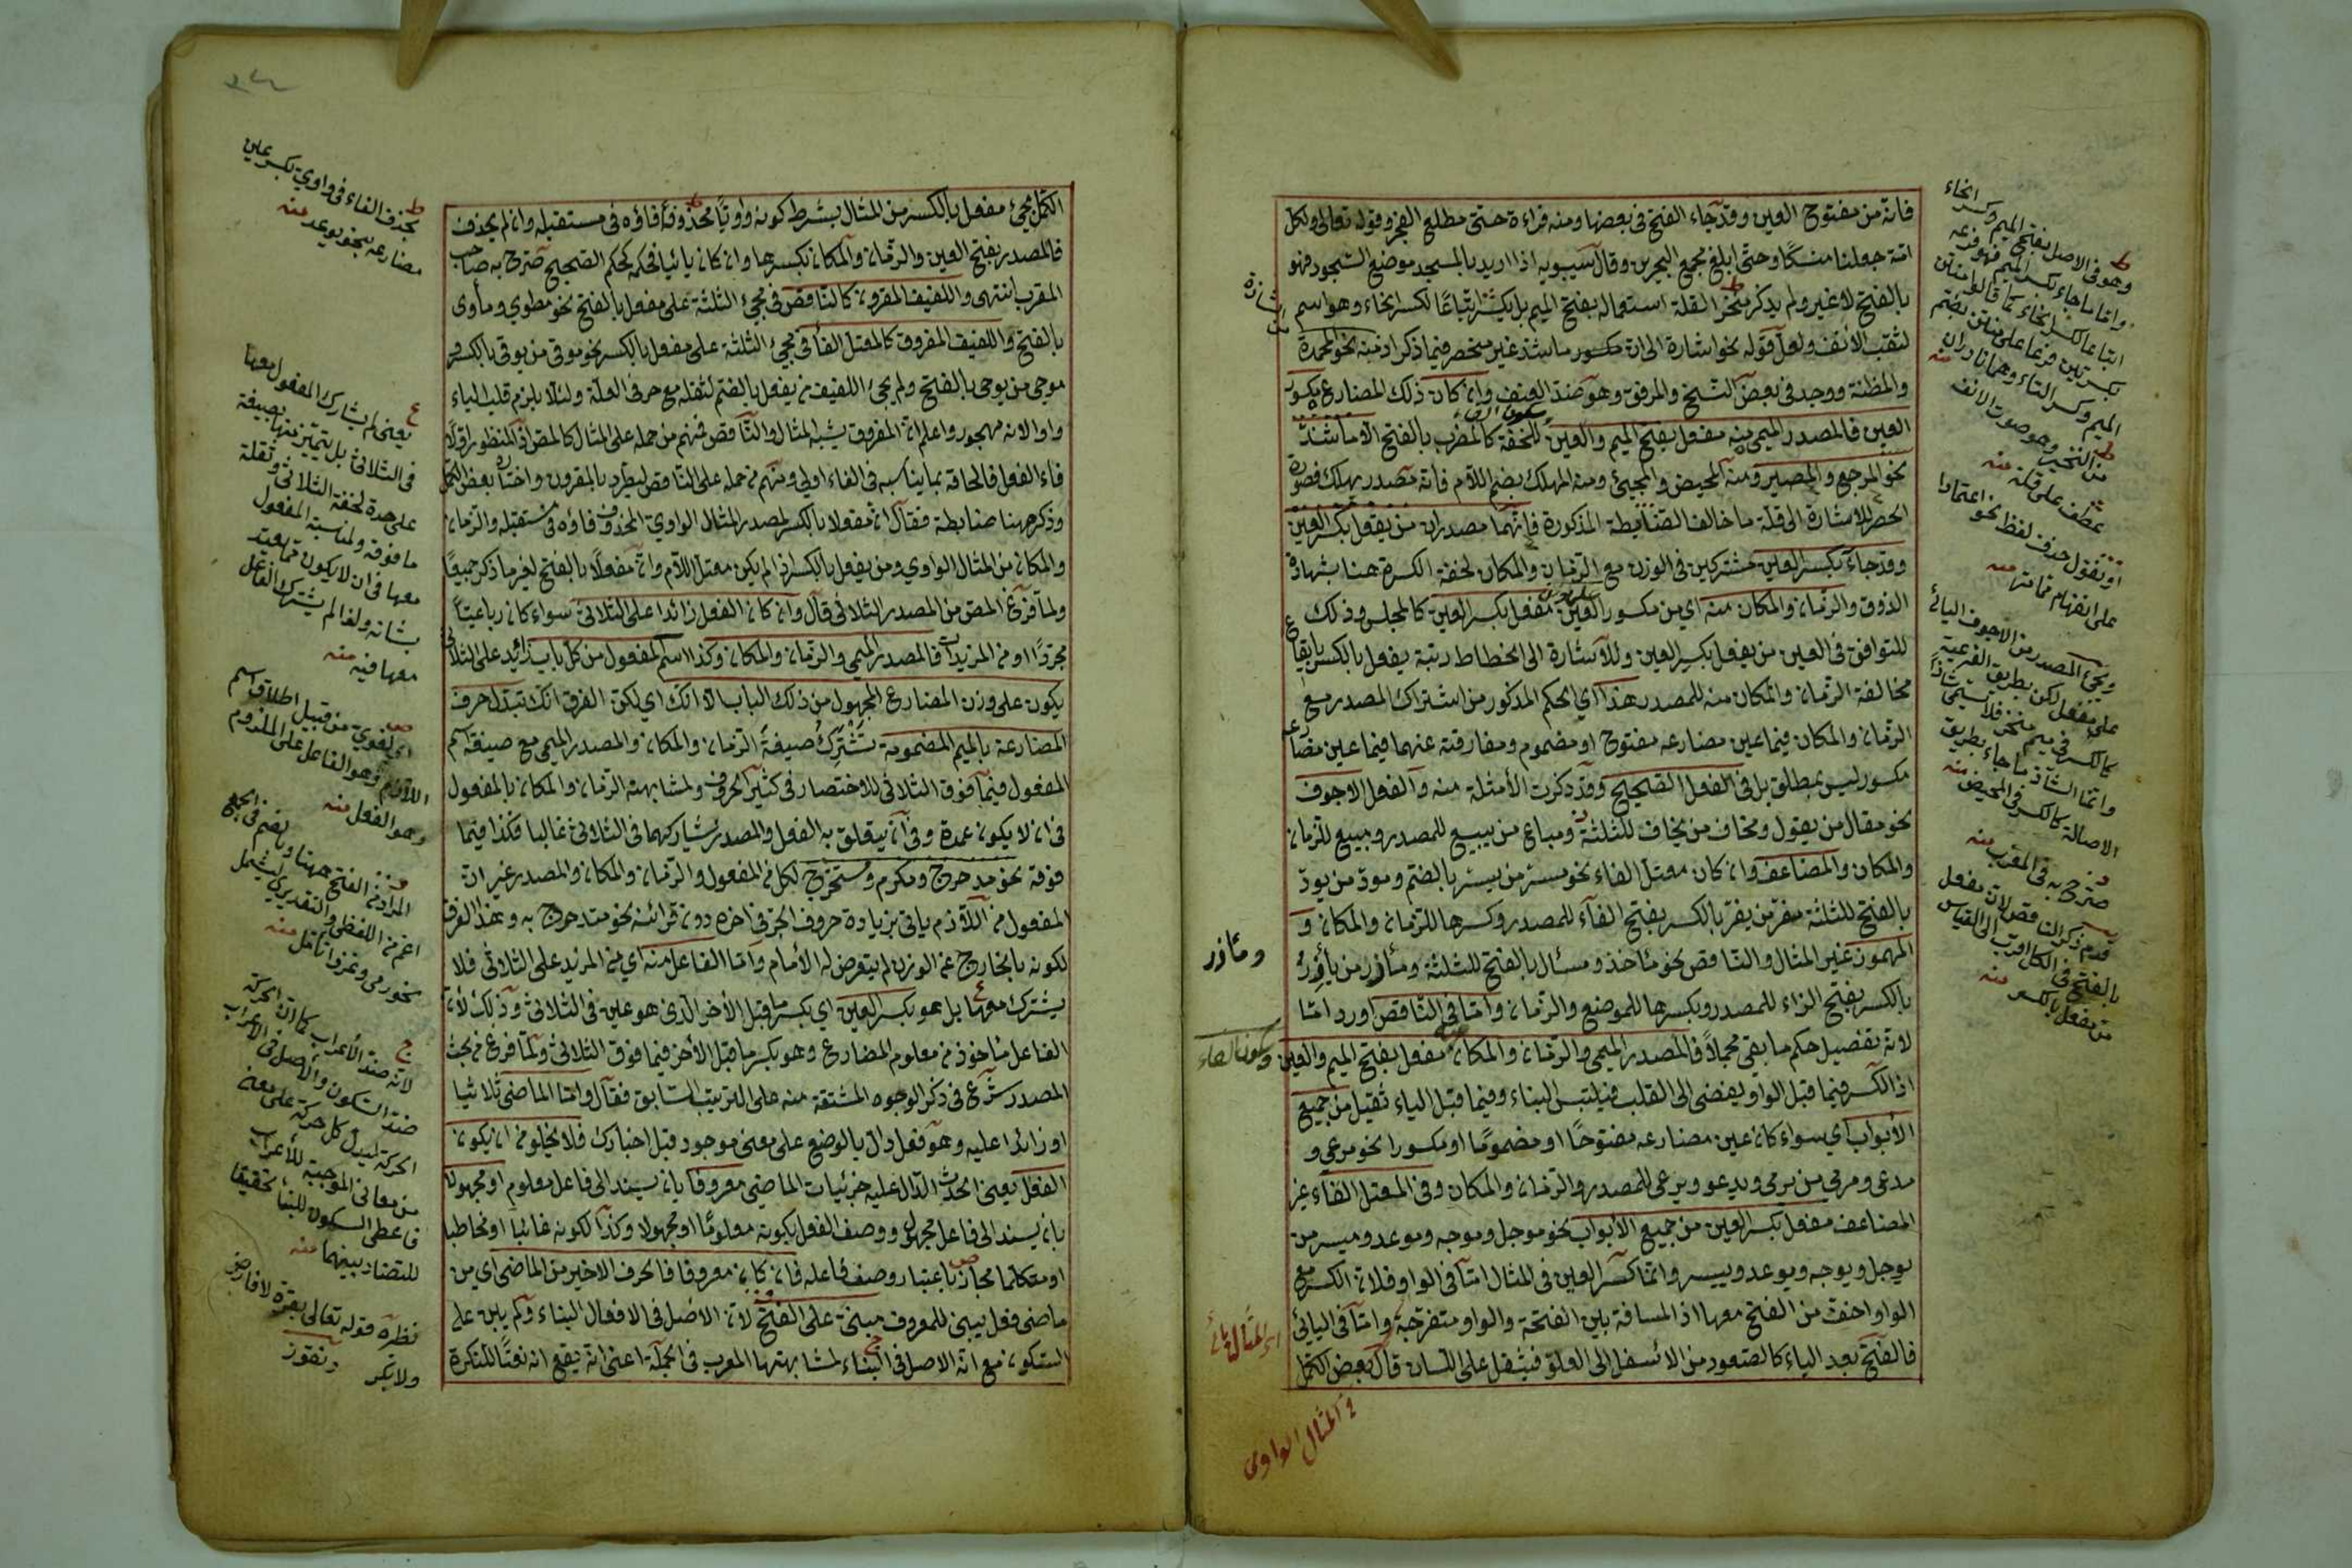 فانه من مفتوح العين وقد جاء الفتح في بعضها ومنه قراءة حتى مطلع الفجر وقوله تعالى ولكل
امة جعلنا منسكا وحتى ابلغ مجمع البحرين وقال سيبويه اذا اريد بالمسجد موضع السجود فهو
بالفتح لا غير ولم يذكر منخر القلة استعماله بفتح الميم بل يكثر اتباعا لكسر الخاء وهو اسم
لثقب الأنف ولعل قوله نحو اشارة الى ان مكسور ما شذ غير منحصر فيما ذكر اذ منه نحو المحمدة
والمظنة ووجد في بعض النسخ والمرفق وهو ضد العنف وان كان ذلك المضارع مكسور
العين فالمصدر الميمي منه مفعل بفتح الميم والعين للخفة كالمضرب بالفتح الا ما شذ
نحو المرجع والمصير ومنه المحيض والمجيئ ومنه المهلك بضم اللام فانه مصدر يهلك
الحصر للاشارة الى قلة ما خالف الضابطة المذكورة فانهما مصدران من يفعل بكسر العين
وقد جاء بكسر العين مشتركين في الوزن مع الزمان والمكان لخفة الكسرة هنا بشهادة
الذوق والزمان والمكان منه اي من مكسور العين مفعل بكسر العين كالمجلس وذلك
للتوافق في العين من يفعل بكسر العين وللاشارة الى انحطاط رتبة يفعل بالكسر بايقاع
مخالفة الزمان والمكان منه للمصدر هذا اي الحكم المذكور من اشتراك المصدر مع
الزمان والمكان فيما عين مضارعه مفتوح او مضموم ومفارقته عنهما فيما عين مضارعه
مكسور ليس بمطلق بل في الفعل الصحيح وقد ذكرت الأمثلة منه والفعل الاجوف
نحو مقال من يقول ومخاف من يخاف للثلثة ومباع من يبيع للمصدر ومبيع للزمان
والمكان والمضاعف وان كان معتل الفاء نحو مسر من يسر بالضم ومود من يود
بالفتح للثلثة مفر من يفر بالكسر بفتح الفاء للمصدر وكسرها للزمان والمكان و
المهموز غير المثال والناقص نحو مأخذ ومسأل بالفتح للثلثة ومأزر من يأزر
بالكسر بفتح الزاء للمصدر وبكسرها للموضع والزمان واما في الناقص اورد امّا
لانه تفصيل حكم ما بقي مجملا فالمصدر الميمي والزمان والمكان مفعل بفتح الميم والعين وسكون الفاء
اذ الكسر فيما قبل الواو يفضي الى القلب فيلتبس البناء وفيما قبل الياء ثقيل من جميع
الأبواب اي سواء كان عين مضارعه مفتوحا او مضموما او مكسورا نحو مرعى و
مدعى ومرمى من يرمي ويدعو ويرعى للمصدر والزمان والمكان وفي المعتل الفاء غير
المضاعف مفعل بكسر العين من جميع الأبواب نحو موجل وموجه وموعد وميسر من
يوجل ويوجه ويوعد وييسر وانما كسر العين في المثال امّا في الواو فلان الكسر مع
الواو اخف من الفتح معها اذ المسافة بين الفتحة والواو منفرجة وامّا في اليائي
فالفتح بعد الياء كالصعود من الاسفل الى العلو فيثقل على اللسان قال بعض الكمل
ومأزر
في المثال الواوي
وهو في الاصل بفتح الميم وكسر الخاء
واما ما جاء بكسر الميم فهو فرعه
اتباعا لكسر الخاء كما قالوا منتن
بكسرتين فرعا على منتن بضم
الميم وكسر التاء وهما نادران منه
من النخير وهو صوت الانف
عطف على قلة منه
او نقول حذف لفظ نحو اعتمادا
على انفهام مما مر منه
ومجيئ المصدر من الاجوف اليائي
على مفعل لكن بطريق الفرعية
كالكسر في ميم منخر فلا يسمى شاذا
وانما الشاذ ما جاء بطريق
الاصالة كالكسر في المحيض منه
صرح به في المغرب منه
قدم ذكر الناقص لان مفعل
بالفتح في الكل اقرب الى القياس
من مفعل بالكسر منه
الكمل مجيئ مفعل بالكسر من المثال بشرط كونه واويا محذوفة فاؤه في مستقبله وان لم يحذف
فالمصدر بفتح العين والزمان والمكان بكسرها وان كان يائيا فحكمه كحكم الصحيح صرح به صاحب
المغرب انتهى واللفيف المقرون كالناقص في مجيئ الثلثة على مفعل بالفتح نحو مطوي ومأوى
بالفتح واللفيف المفروق كالمعتل الفاء في مجيئ الثلثة على مفعل بالكسر نحو موقي من يوقي بالكسر و
موجي من يوجى بالفتح ولم يجئ اللفيف من يفعل بالضم لثقله مع حرفي العلة ولئلا يلزم قلب الياء
واوا لانه مهجور واعلم ان المفروق يشبه المثال والناقص فمنهم من حمله على المثال كالمص اذ المنظور اولا
فاء الفعل فالحاقه بما يناسبه في الفاء اولى ومنهم من حمله على الناقص ليطرد بالمقرون واختاره بعض الكمل
وذكر ههنا ضابطة فقال ان مفعلا بالكسر لمصدر المثال الواوي المحذوف فاؤه في مستقبله والزمان
والمكان من المثال الواوي ومن يفعل بالكسر اذ لم يكن معتل اللام وان مفعلا بالفتح لغير ما ذكر جميعا
ولما فرغ المص من المصدر الثلاثي قال وان كان الفعل زائدا على الثلاثي سواء كان رباعيا
مجردا او من المزيدات فالمصدر الميمي والزمان والمكان وكذا اسم المفعول من كل باب زائد على الثلاثي
يكون على وزن المضارع المجهول من ذلك الباب الا انك اي لكن الفرق انك تبدل حرف
المضارعة بالميم المضمومة تشترك صيغة الزمان والمكان والمصدر الميمي مع صيغة اسم
المفعول فيما فوق الثلاثي للاختصار في كثير الحروف ولمشابهة الزمان والمكان بالمفعول
في ان لا يكون عمدة وفي ان يتعلق به الفعل والمصدر يشاركهما في الثلاثي غالبا فكذا فيما
فوقه نحو مدحرج ومكرم ومستخرج لكل من المفعول والزمان والمكان والمصدر غير ان
المفعول من اللازم ياتي بزيادة حروف الجر في اخره دون قرائنه نحو متدحرج به وهذا الفرق
لكونه بالخارج عن الوزن لم يتعرض له الأمام وامّا الفاعل منه اي من المزيد على الثلاثي فلا
يشترك معها بل هو بكسر العين اي بكسر ما قبل الأخر الذي هو عين في الثلاثي وذلك لأن
الفاعل مأخوذ من معلوم المضارع وهو بكسر ما قبل الأخر فيما فوق الثلاثي ولما فرغ من بحث
المصدر شرع في ذكر الوجوه المشتقة منه على الترتيب السابق فقال وامّا الماضي ثلاثيا
او زائدا عليه وهو فعل دال بالوضع على معنى موجود قبل اخبارك فلا يخلو من ان يكون
الفعل يعني الحدث الدال عليه جزئيات الماضي معروفا بان يسند الى فاعل معلوم او مجهولا
بان يسند الى فاعل مجهول ووصف الفعل بكونه معلوما او مجهولا وكذا لكونه غائبا او مخاطبا
او متكلما مجاز باعتبار وصف فاعله فان كان معروفا فالحرف الاخير من الماضي اي من
ماضي فعل يبنى للمعروف مبني على الفتح لان الاصل في الافعال البناء ولم يبن على
السكون مع انه الاصل في البناء لمشابهتها المعرب في الجملة اعني انه يقع انه نعتا للنكرة
بحذف الفاء في واوي بكسر عين
مضارعه نحو يوعد منه
يعني لم يشارك المفعول معها
في الثلاثي بل يتميز منها بصيغة
على حدة لخفة الثلاثي وثقلة
ما فوقه ولمناسبة المفعول
معها في ان لا يكون مما يعتد
بشانه ولذا لم يشترك الفاعل
معها فيه منه
اي لغوي من قبيل اطلاق اسم
اللازم وهو الفاعل على الملزوم
وهو الفعل منه
المراد من الفتح ههنا وبالضم في الجمع
اعم من اللفظي والتقديري ليشمل
نحو رمى وغزوا تأمل منه
لانه ضد الأعراب كما ان الحركة
ضد السكون والأصل في الأعراب
الحركة ليدل كل حركة على معنى
من معاني الموجبة للأعراب
فاعطى السكون للبناء تحقيقا
للتضاد بينهما منه
نظره قوله تعالى بقرة لا فارض
ولا بكر